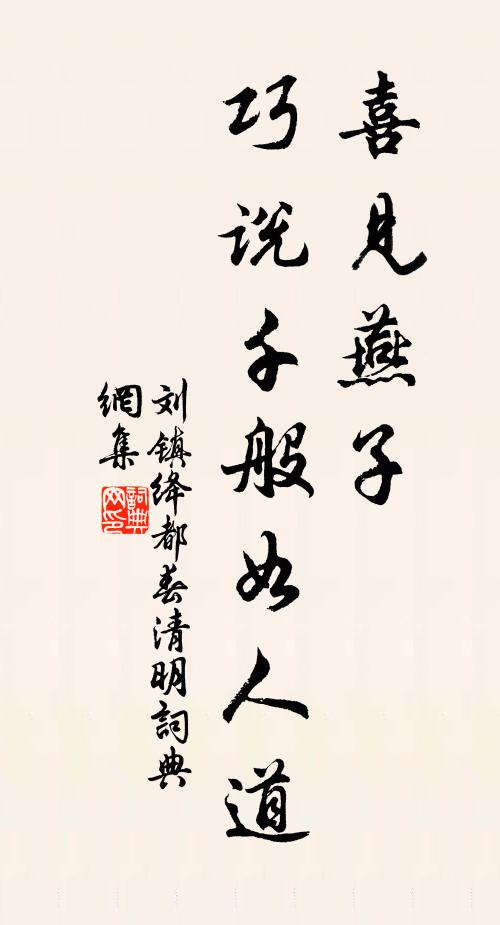 喜見燕子
巧説千般如人道
刘镇绛都春清明詞典
網集
詞典
网印